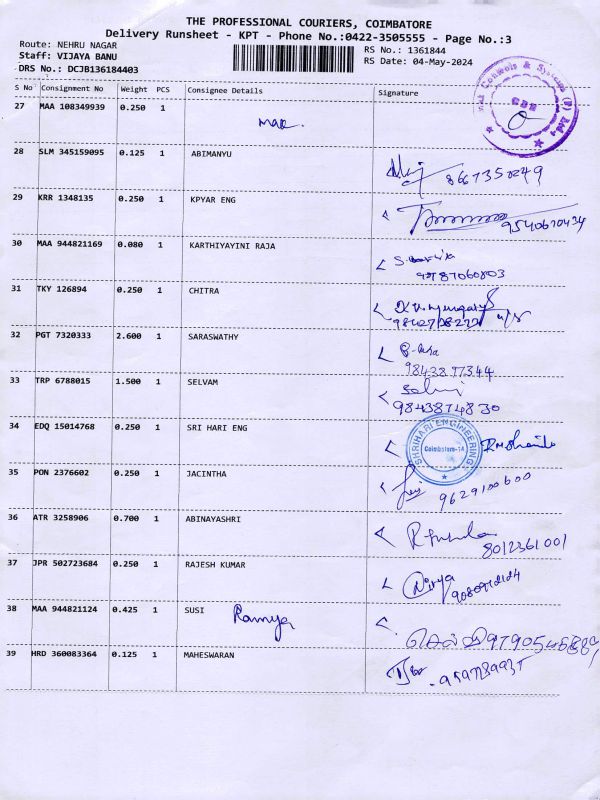 THE PROFESSIONAL COURIERS, COIMBATORE
Delivery Runsheet - KPT - Phone No.:0422-3505555 - Page No.:3
Route: NEHRU NAGAR
Staff: VIJAYA BANU
DRS No.: DCJB136184403
RS No.: 1361844
RS Date: 04-May-2024
S No Consignment No Weight PCS Consignee Details Signature
27 MAA 108349939 0.250 1
28 SLM 345159095 0.125 1 ABIMANYU
29 KRR 1348135 0.250 1 KPYAR ENG
9540670434
30 MAA 944821169 0.080 1 KARTHIYAYINI RAJA
31 TKY 126894 0.250 1 CHITRA
32 PGT 7320333 2.600 1 SARASWATHY
9843877344
33 TRP 6788015 1.500 1 SELVAM
9843874830
34 EDQ 15014768 0.250 1 SRI HARI ENG
SHRIHARI ENGINEERING
Coimbatore-14
35 PON 2376602 0.250 1 JACINTHA
9629100600
36 ATR 3258906 0.700 1 ABINAYASHRI
8012361001
37 JPR 502723684 0.250 1 RAJESH KUMAR
38 MAA 944821124 0.425 1 SUSI Ramya
39 HRD 360083364 0.125 1 MAHESWARAN